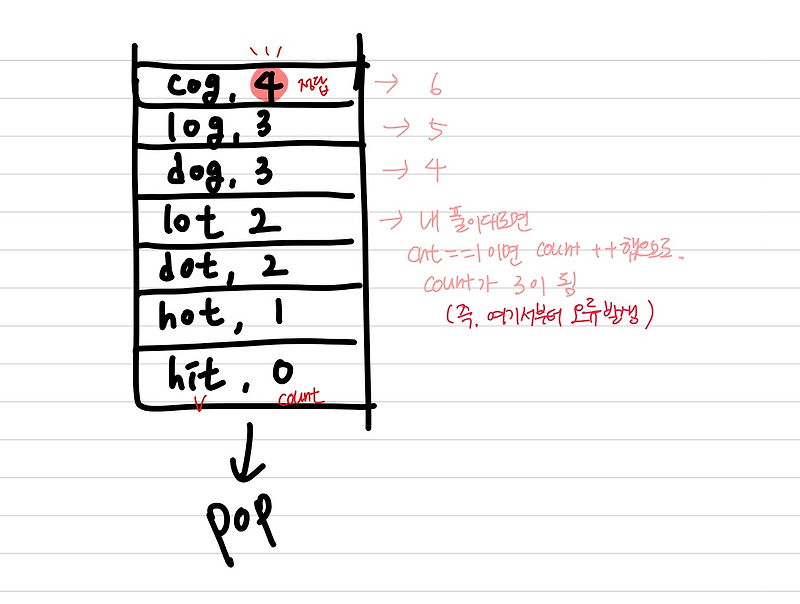 cog, 4 정답 → 6
log, 3 → 5
dog, 3 → 4
lot 2 → 내 풀이대로면
cnt==1이면 count ++했으므로.
count가 3이 됨
(즉, 여기서부터 오류발생)
dot, 2
hot, 1
hit, 0
v count
pop